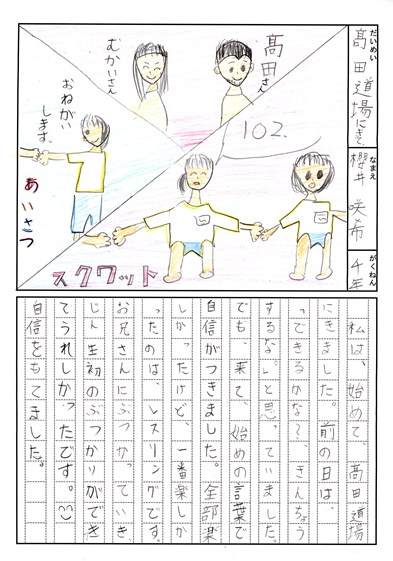 だいめい
髙田道場にきて
なまえ
櫻井 咲希
がくねん
4年
髙田さん
むかいさん
おねがい
します。
あいさつ
102.
スクワット
私は、始めて、髙田道場
にきました。前の日は、
「できるかな〜、きんちょう
するな。」と思っていました。
でも、来て、始めの言葉で
自信がつきました。全部楽
しかったけど、一番楽しか
ったのは、レスリングです。
お兄さんにぶつかっていき、
じん生初のぶつかりができ
てうれしかったです。
自信をもてました。